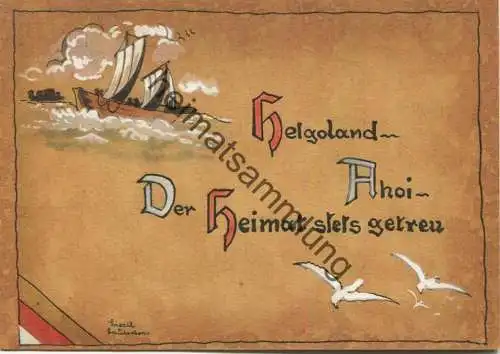 Helgoland~
Ahoi~
Der Heimat stets getreu
heimatsammlung.de